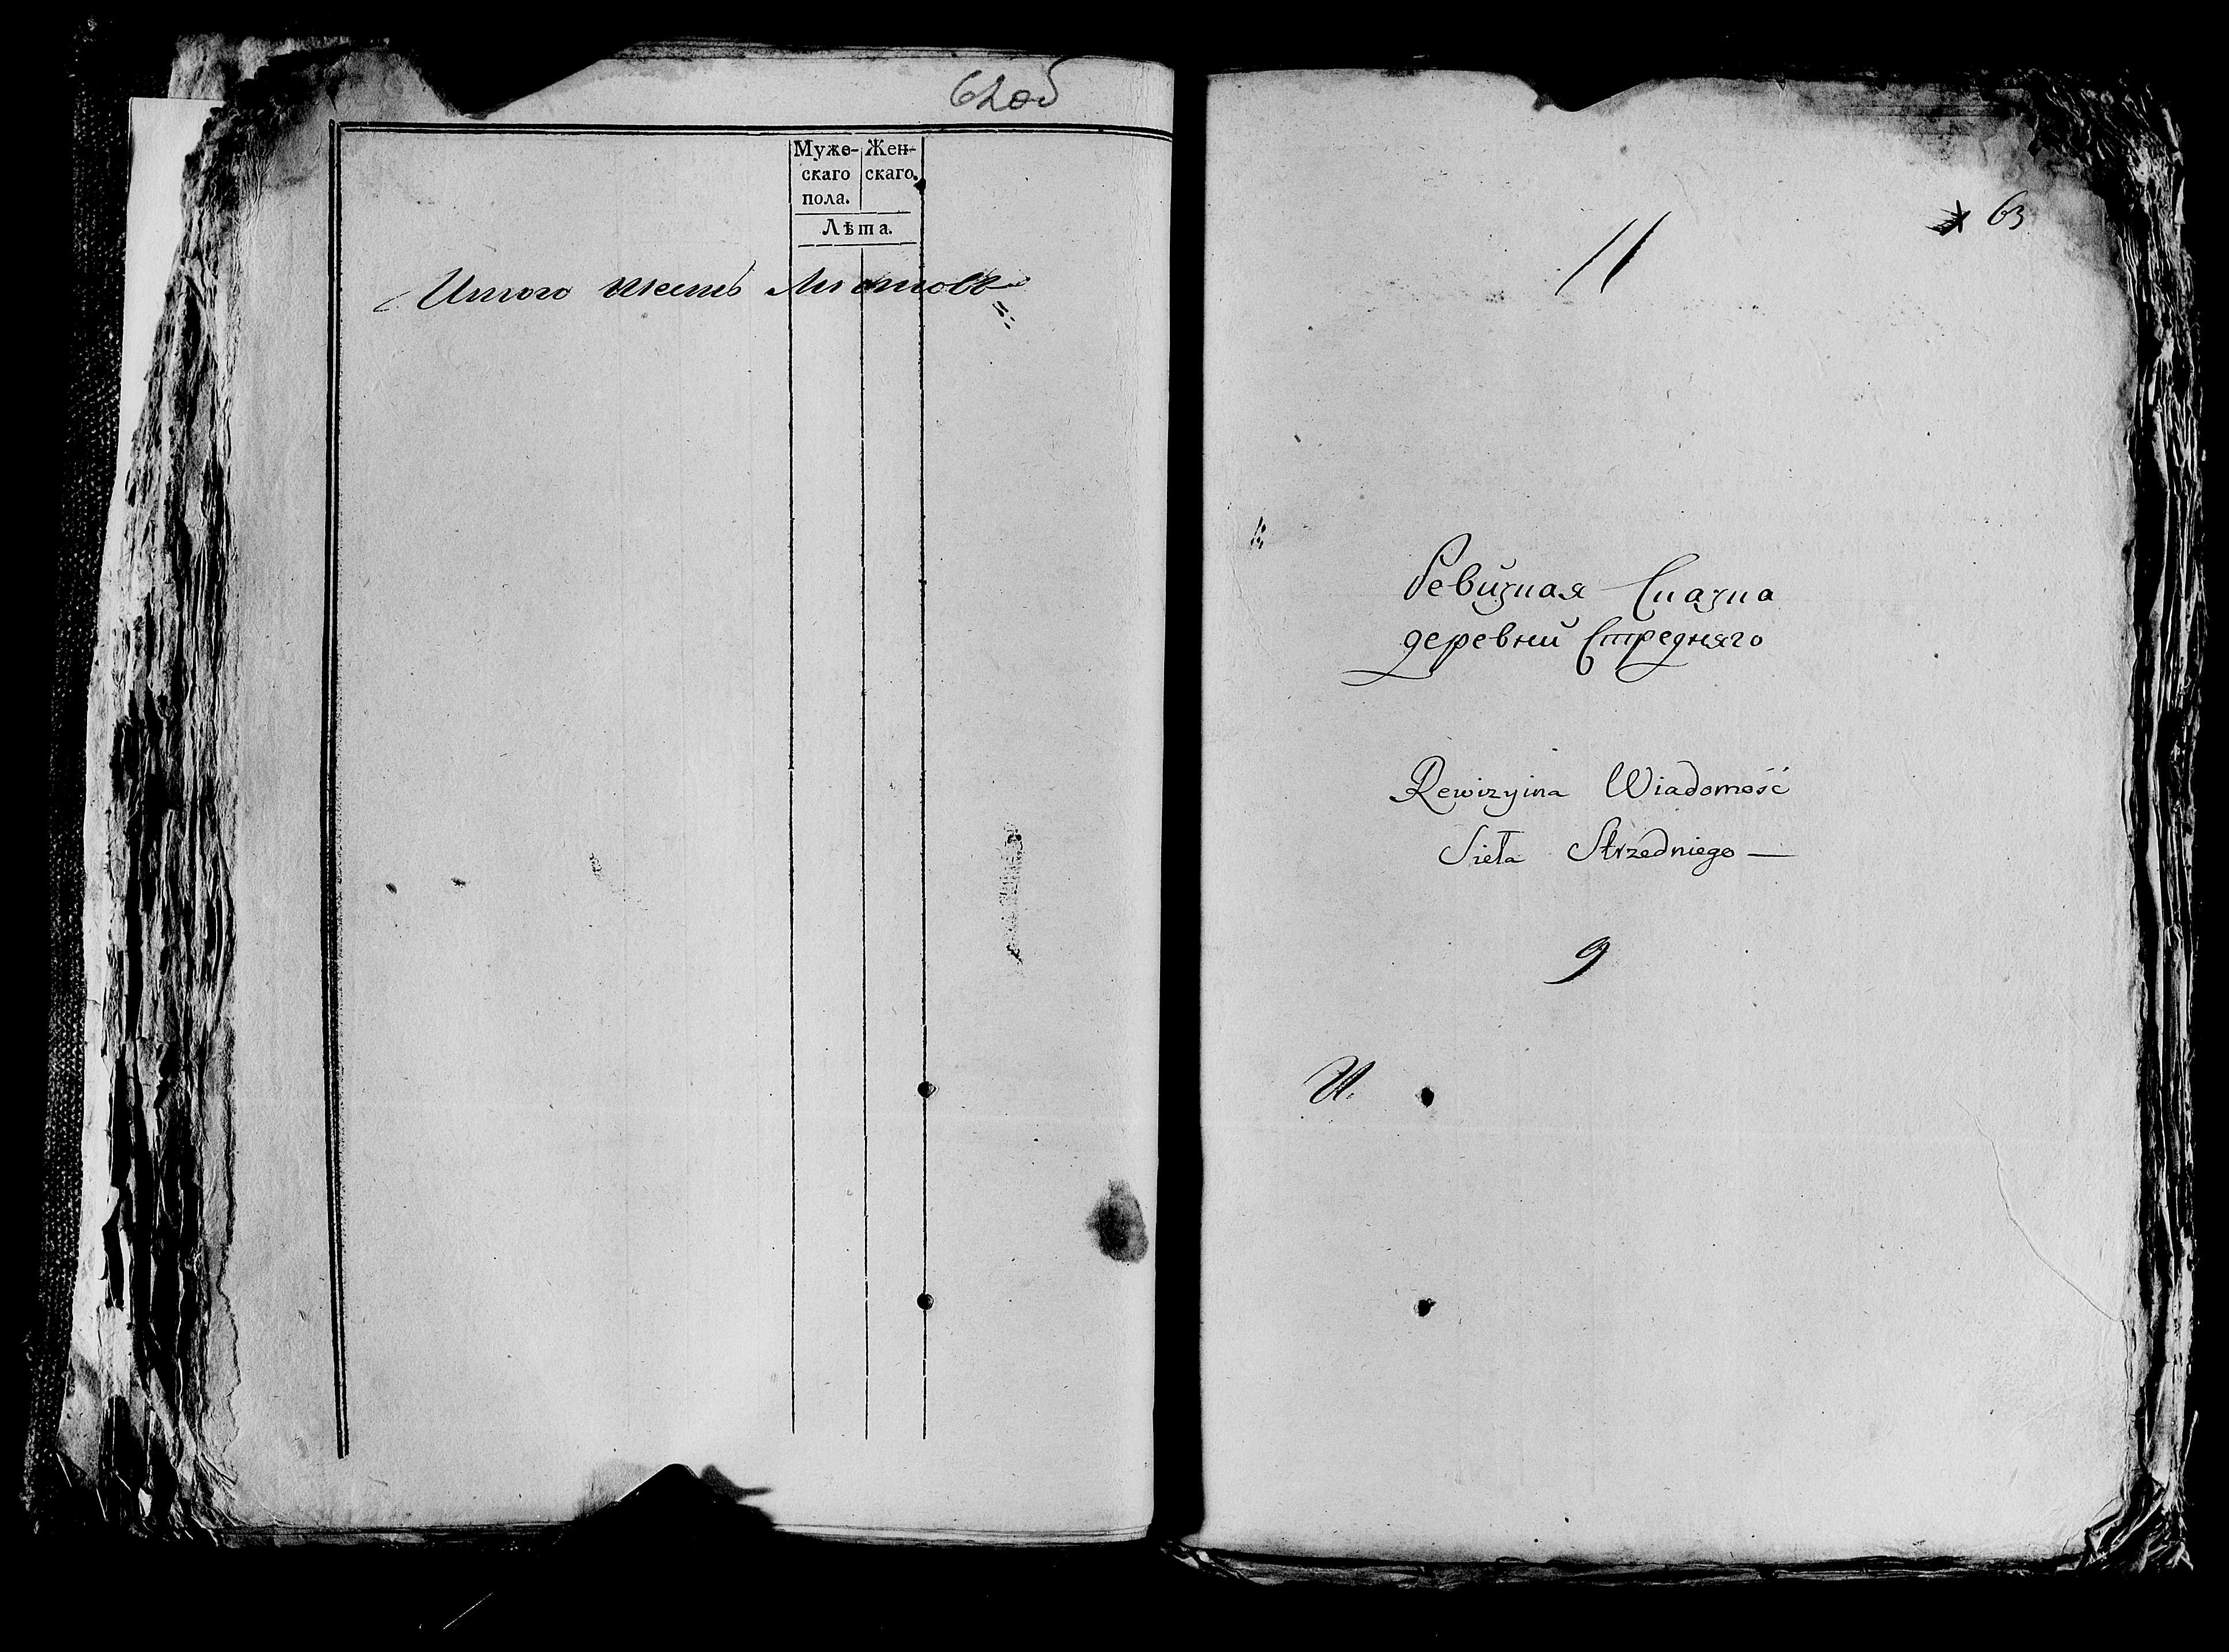 62об
Муже- Жен-
скаго скаго.
пола.
Лѣта.
Итого шесть листовъ
63
11
Ревизная Сказка
деревни Стредняго
Rewizyina Wiadomość
Sieła Strzedniego —
9
И.